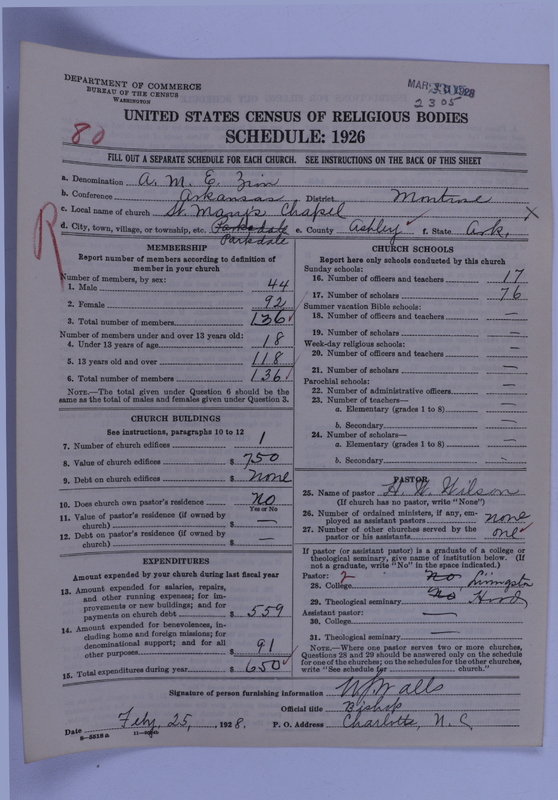 DEPARTMENT OF COMMERCE
BUREAU OF THE CENSUS
WASHINGTON
MAR 1928
2305
UNITED STATES CENSUS OF RELIGIOUS BODIES
SCHEDULE: 1926
80
FILL OUT A SEPARATE SCHEDULE FOR EACH CHURCH. SEE INSTRUCTIONS ON THE BACK OF THIS SHEET
a. Denomination A. M. E. Zion
b. Conference Arkansas District Montrose
c. Local name of church St. Mary's Chapel X
d. City, town, village, or township, etc. Parksdale e. County Ashley f. State Ark.
Parkdale
R
MEMBERSHIP
Report number of members according to definition of
member in your church
Number of members, by sex:
1. Male 44
2. Female 92
3. Total number of members 136
Number of members under and over 13 years old:
4. Under 13 years of age 18
5. 13 years old and over 118
6. Total number of members 136
NOTE.—The total given under Question 6 should be the
same as the total of males and females given under Question 3.
CHURCH BUILDINGS
See instructions, paragraphs 10 to 12
7. Number of church edifices 1
8. Value of church edifices $ 750
9. Debt on church edifices $ none
10. Does church own pastor's residence No
Yes or No
11. Value of pastor's residence (if owned by
church) $ —
12. Debt on pastor's residence (if owned by
church) $ —
EXPENDITURES
Amount expended by your church during last fiscal year
13. Amount expended for salaries, repairs,
and other running expenses; for im-
provements or new buildings; and for
payments on church debt $ 559
14. Amount expended for benevolences, in-
cluding home and foreign missions; for
denominational support; and for all
other purposes $ 91
15. Total expenditures during year $ 650
CHURCH SCHOOLS
Report here only schools conducted by this church
Sunday schools:
16. Number of officers and teachers 17
17. Number of scholars 76
Summer vacation Bible schools:
18. Number of officers and teachers —
19. Number of scholars —
Week-day religious schools:
20. Number of officers and teachers —
21. Number of scholars —
Parochial schools:
22. Number of administrative officers —
23. Number of teachers—
a. Elementary (grades 1 to 8) —
b. Secondary —
24. Number of scholars—
a. Elementary (grades 1 to 8) —
b. Secondary —
PASTOR
25. Name of pastor H. W. Wilson
(If church has no pastor, write "None")
26. Number of ordained ministers, if any, em-
ployed as assistant pastors none
27. Number of other churches served by the
pastor or his assistants one
If pastor (or assistant pastor) is a graduate of a college or
theological seminary, give name of institution below. (If
not a graduate, write "No" in the space indicated.)
Pastor: 2
28. College No Livingston
29. Theological seminary No Hood
Assistant pastor:
30. College —
31. Theological seminary —
NOTE.—Where one pastor serves two or more churches,
Questions 28 and 29 should be answered only on the schedule
for one of the churches; on the schedules for the other churches,
write "See schedule for church."
Signature of person furnishing information W J Walls
Official title Bishop
Date Feby. 25, 1928. P. O. Address Charlotte, N. C
8—5818a